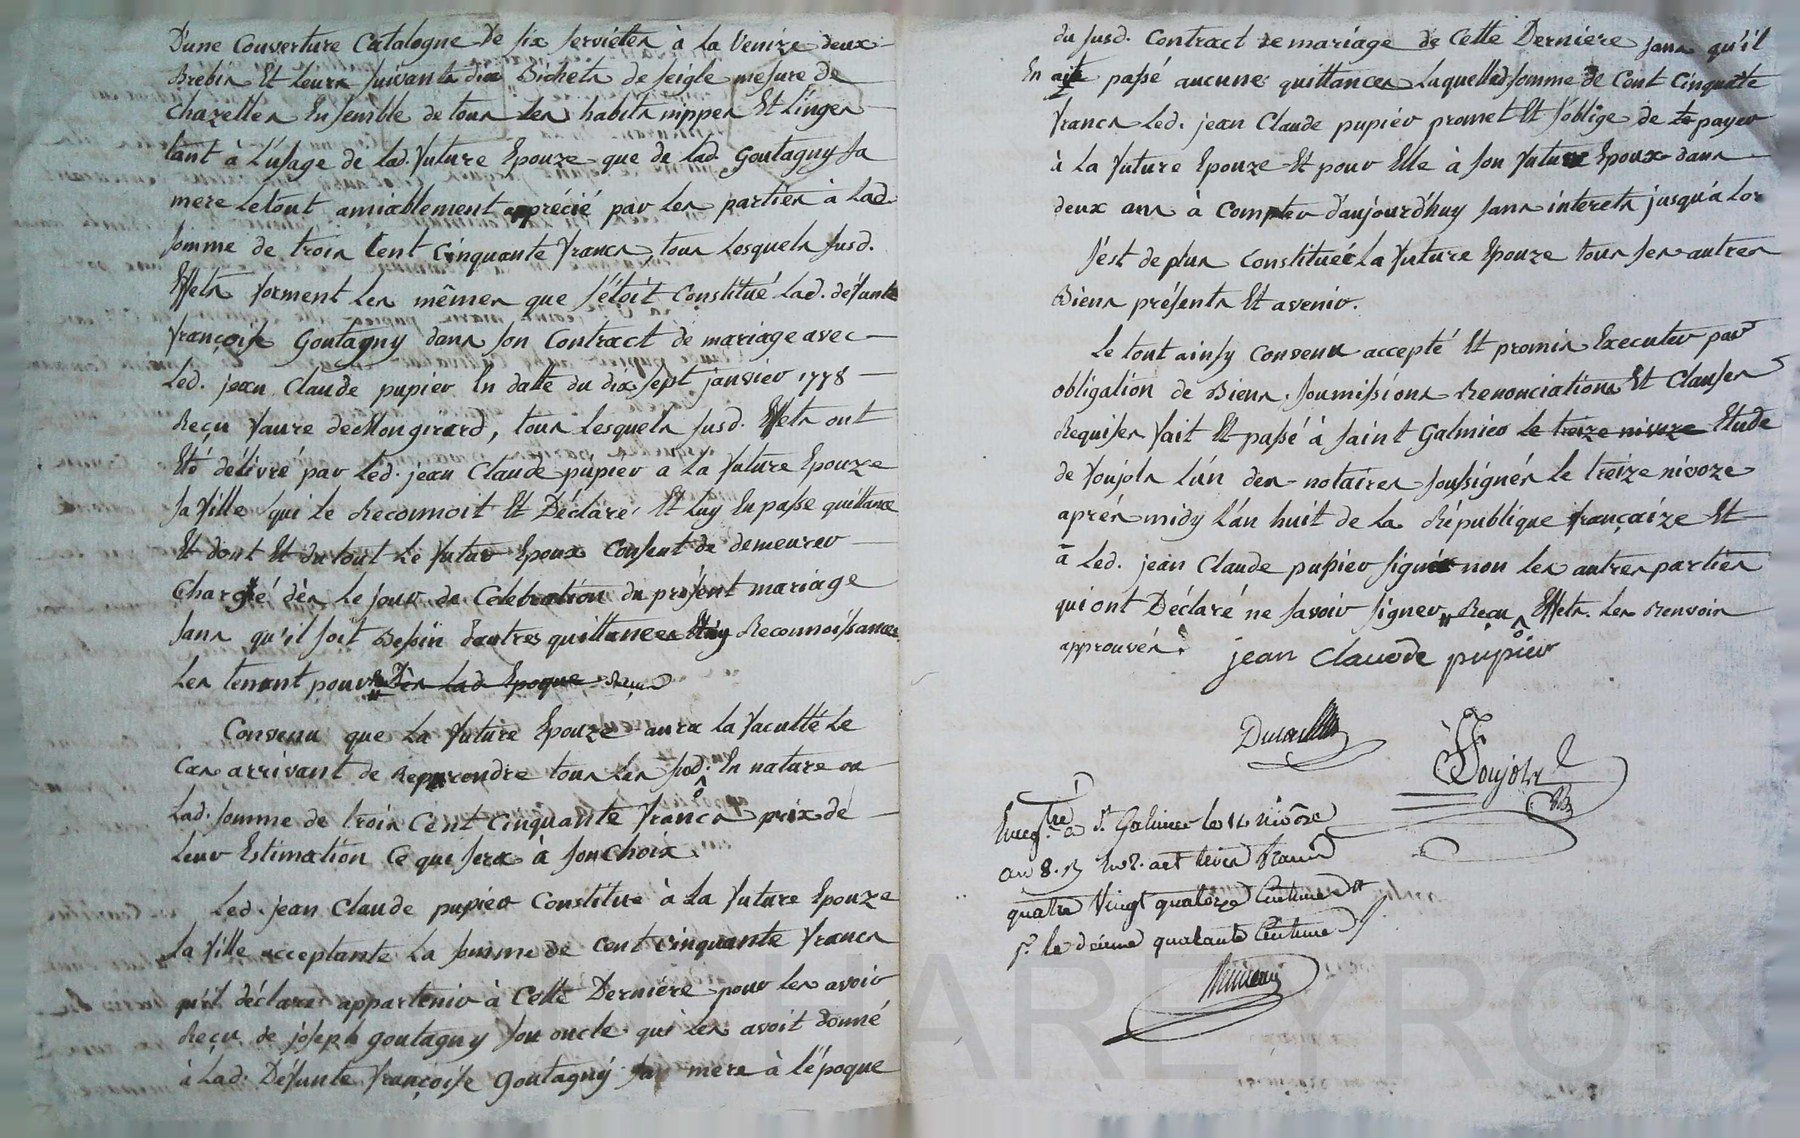 D'une Couverture Catalogne De six serviettes à La Venize deux
Brebis Et Leurs suivants dix Bichets de seigle mesure de
Chazelles Ensemble de tous les habits nippes Et Linges
tant à L'usage de Lad. future Epouze que de Lad. Goutagny sa
mere Le tout amiablement apprécié par Les parties à Lad.
somme de trois Cent Cinquante francs, tous Lesquels susd.
Effets forment Les mêmes que s'étoit Constitué Lad. défunte
françoise Goutagny dans son Contract de mariage avec
Led. jean Claude pupier En datte du dix sept janvier 1778
Reçu faure de Mongirard, tous Lesquels susd. Effets ont
Eté délivré par Led. jean Claude pupier a La future Epouze
sa fille qui Le Reconnoit Et Déclare Et Luy En passe quittance
Et dont Et du tout Le futur Epoux Consent de demeurer
Chargé dès Le jour de Célébration du présent mariage
sans qu'il soit Besoin d'autres quittances Reconnoissances
Les tenant pour Dès Lad. Epoque Reçus
Convenu que La future Epouze aura La faculté Le
Cas arrivant de Reprendre tous Les susd. En nature ou
Lad. somme de trois Cent Cinquante francs prix de
Leur Estimation Ce que sera à son Choix
Led. jean Claude pupier Constitue à La future Epouze
La fille acceptante La somme de Cent Cinquante francs
qu'il déclare appartenir à Cette Dernière pour Les avoir
Reçu de joseph goutagny son oncle qui Les avoit donné
à Lad. Défunte françoise goutagny sa mère à L'époque
du susd. Contract de mariage de Cette Dernière sans qu'il
En aye passé aucunes quittances Laquelle somme de Cent Cinquante
francs Led. jean Claude pupier promet Et s'oblige de payer
à La future Epouze Et pour Elle à son futur Epoux dans
deux ans à Compter d'aujourd'huy sans interets jusqu'à Lors
s'est de plus Constituée La future Epouze tous ses autres
Biens présents Et avenir.
Le tout ainsy Convenu accepté Et promis Executer par
obligation de Biens, soumissions Renonciations Et Clauses
Requises fait Et passé à saint Galmier Le treize nivoze Etude
de foujols L'un des notaires soussignés Le treize nivoze
après midy L'an huit de La République françaize Et
a Led. jean Claude pupier signé non Les autres parties
qui ont Déclaré ne savoir signer Reçu Effets. Les Renvois
approuvés.
jean Claude pupier
Foujols
Enregtré à St. Galmier le 14 nivôse
an 8.
quatre Vingt quatorze Centimes
pr. le décime quarante Centimes
CHAREYRON